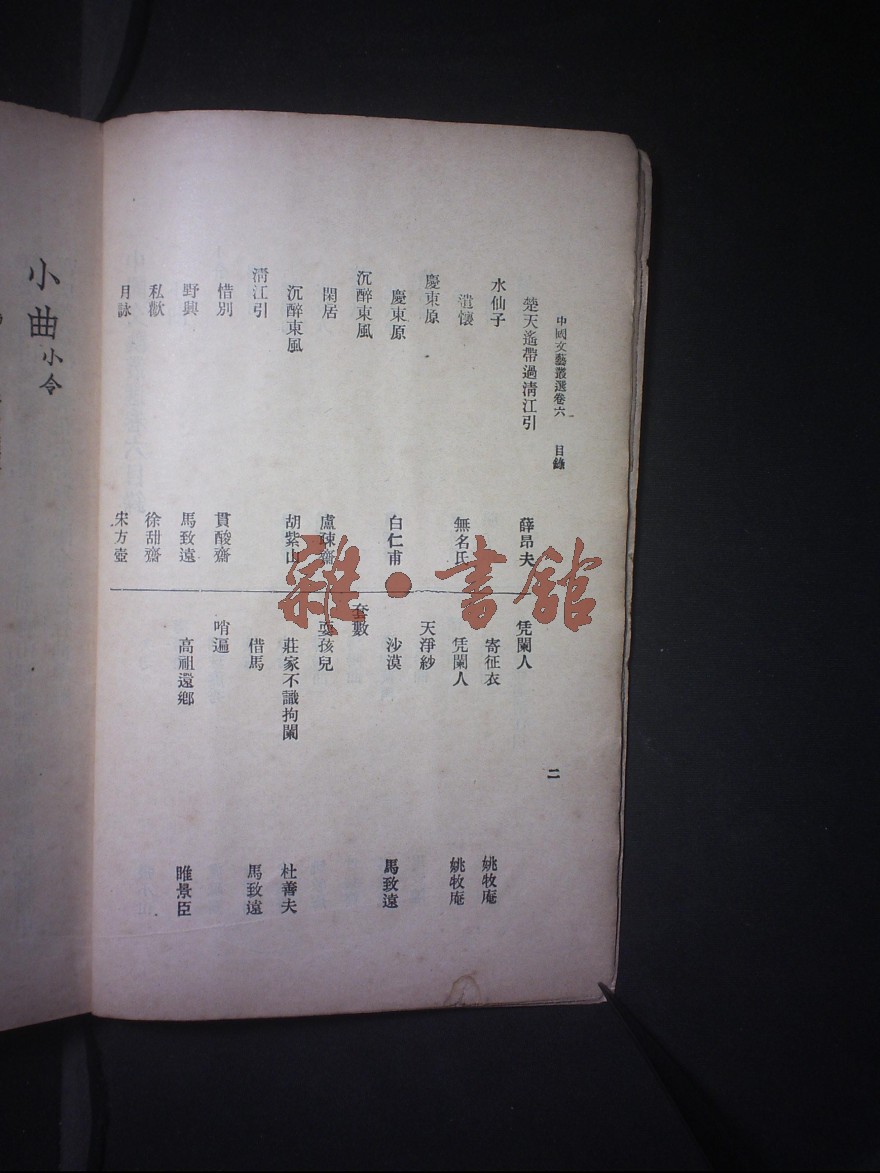 中國文藝叢選卷六 目錄 二
楚天遙帶過清江引 薛昂夫
水仙子
遣懷 無名氏
慶東原
慶東原 白仁甫
沉醉東風
閑居 盧疎齋
沉醉東風 胡紫山
清江引
惜別 貫酸齋
野興 馬致遠
私歡 徐甜齋
月詠 宋方壺
凭闌人
寄征衣 姚牧庵
凭闌人 姚牧庵
天淨紗
沙漠 馬致遠
套數
耍孩兒
莊家不識拘闌 杜善夫
借馬 馬致遠
哨遍
高祖還鄉 睢景臣
小曲 小令
雜·書館